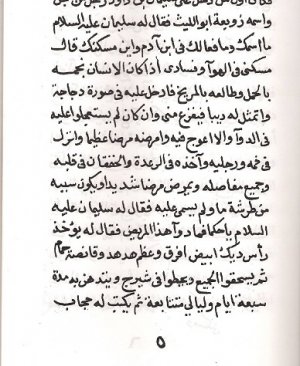 واسمه زوبعة ابو الليث فقال له سليمان عليه السلام
ما اسمك وما فعالك في ابن آدم واين مسكنك قال
مسكني في الهوآ وفسادى اذا كان الانسان نجمه
بالحمل وطالعه بالمريخ فادخل عليه في صورة دجاجة
واتمثل له ديبا فيفزع منى وان كان لم يستعملوا عليه
في الدوآ والا اعوج فيه وامرضه مرضا عظيما وانزل
في فمه ورجليه وآخذه في الرعدة والخفقان في قلبه
وجميع مفاصله ويمرض مرضا شديدا ويكون سببه
من طرشة مآ ولم يسمى عليه فقال له سليمان عليه
السلام ياحكافما دوآ هذا المريض فقال له يؤخذ
رأس ديك ابيض افرق وعظم هدهد وقانصة حمام
ثم يسحقوا الجميع ويحطوا في شيرج ويندهن به مدة
سبعة ايام وليالي متتابعة ثم يكتب له حجاب
٥